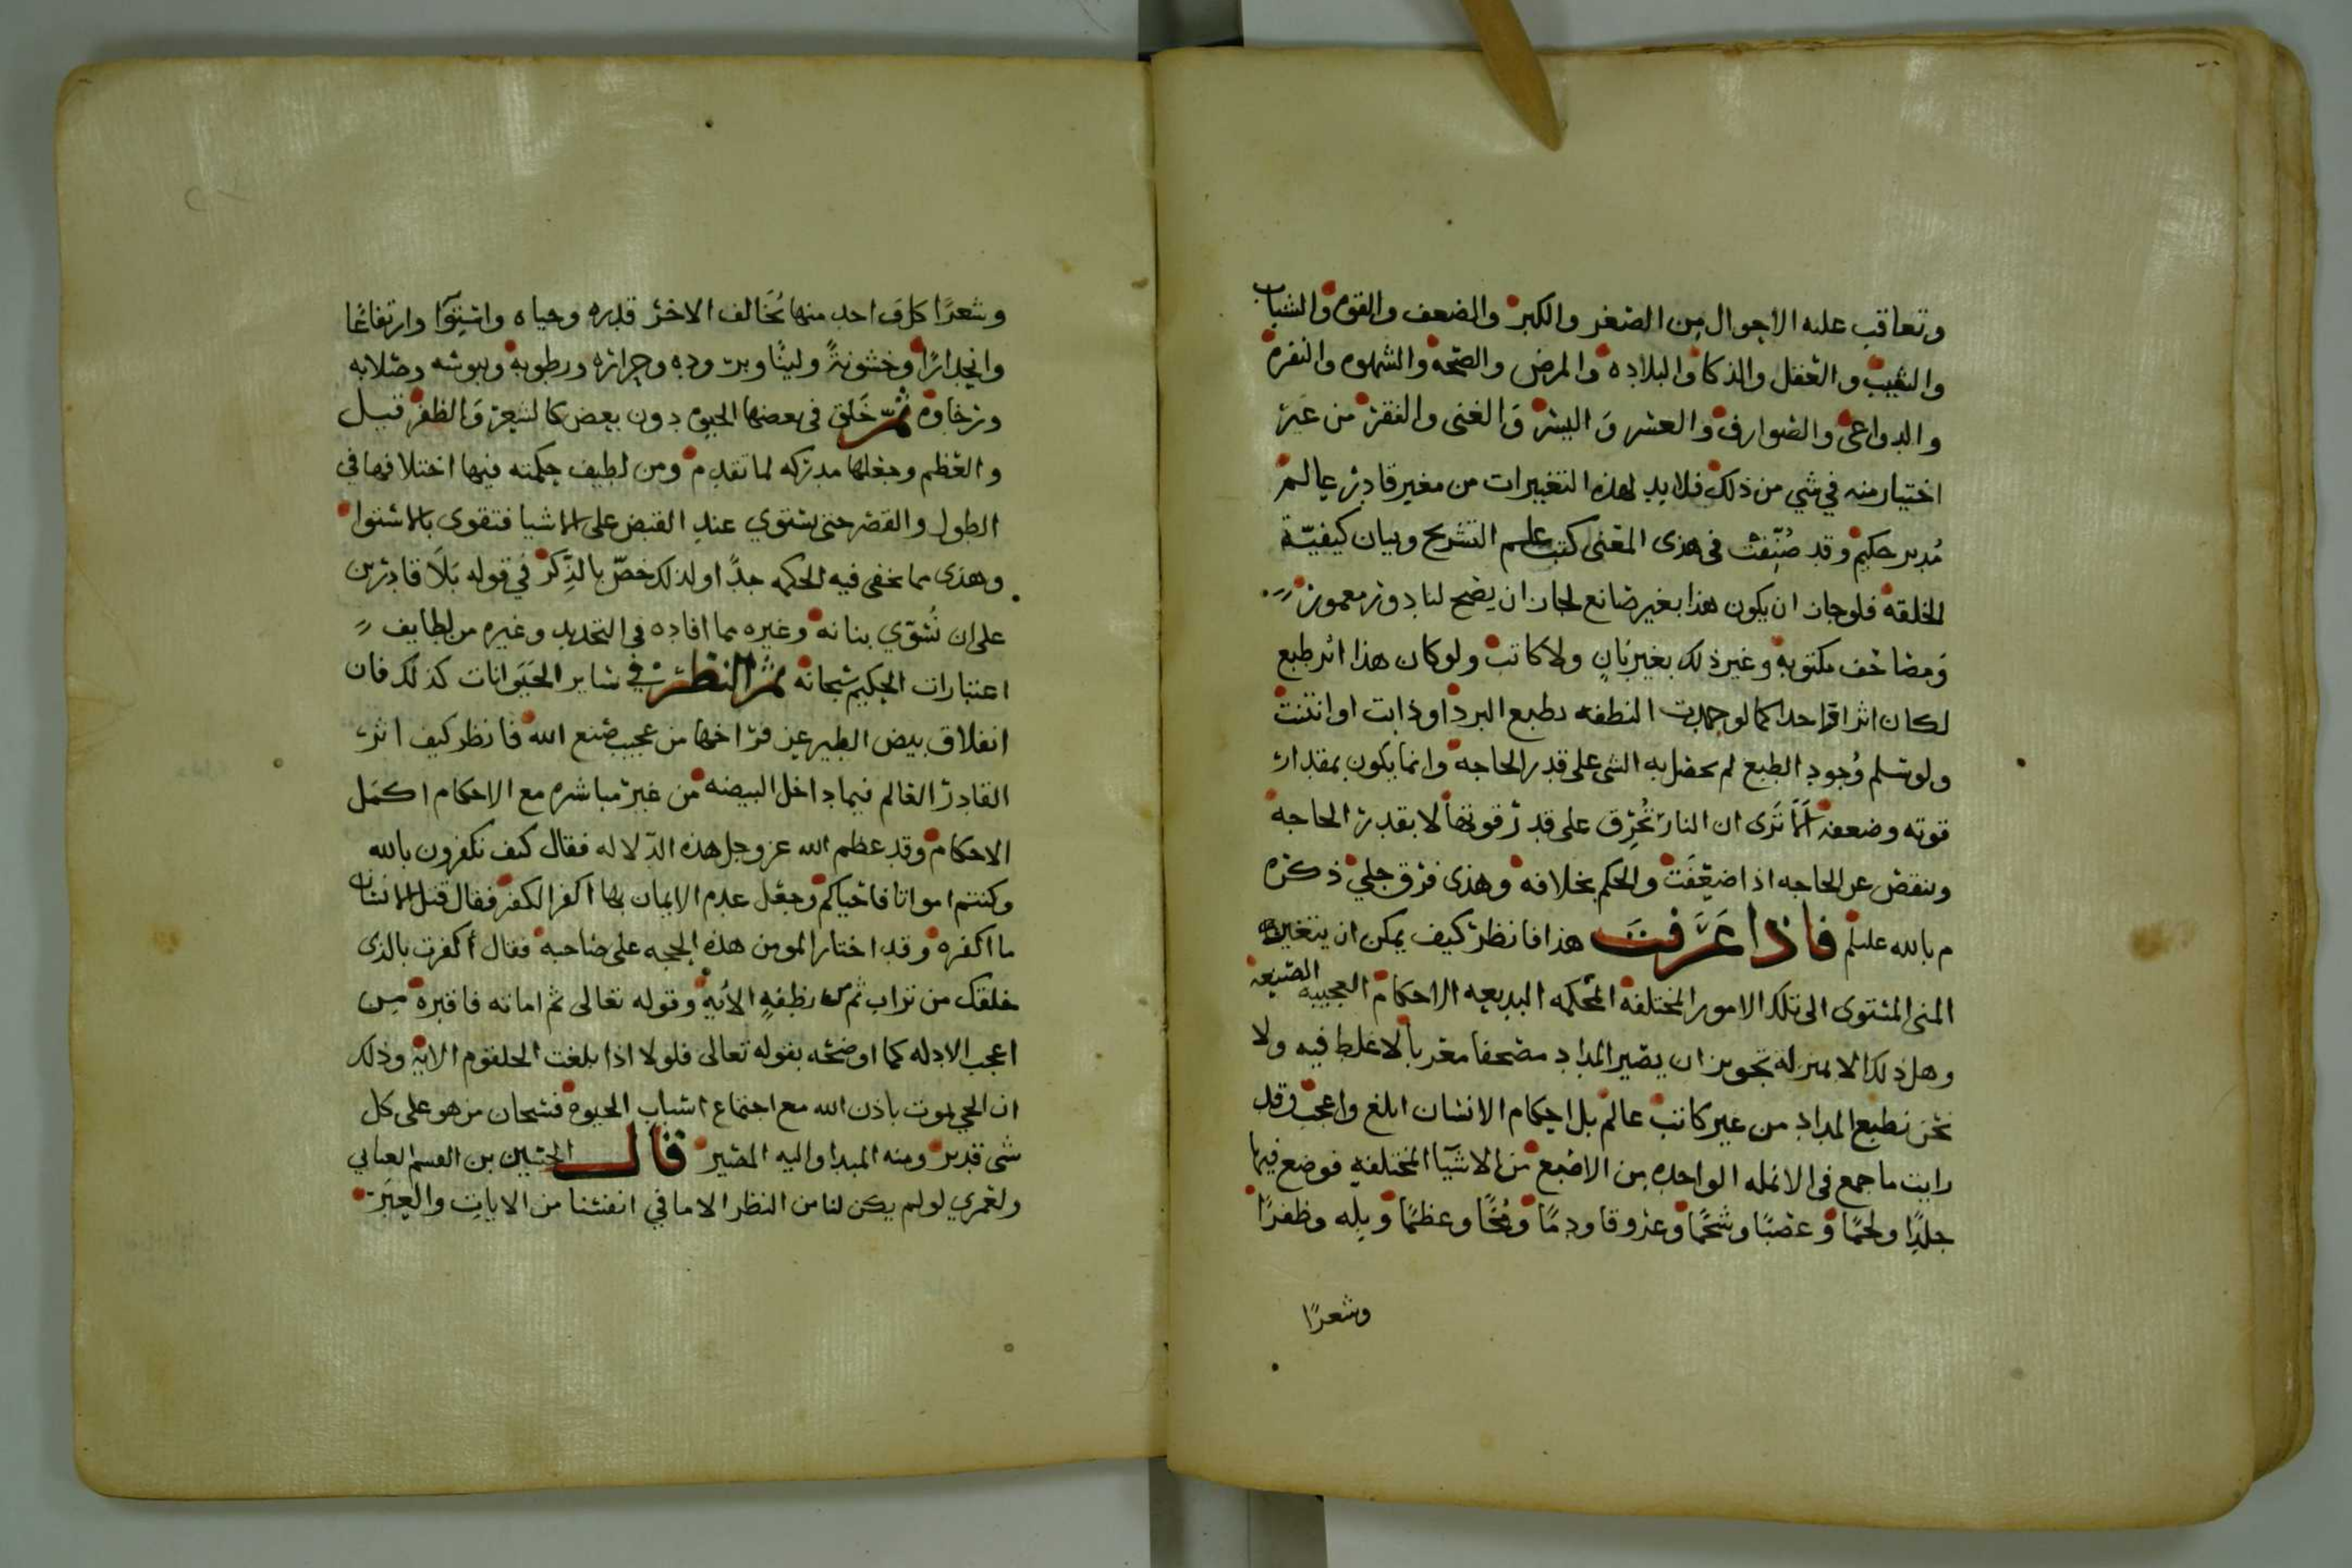 وتعاقب عليه الاحوال من الصغر والكبر والضعف والقوه والشباب
والشيب والعقل والذكا والبلاده والمرض والصحه والشهوه والنفره
والدواعي والصوارف والعسر واليسر والغنى والفقر من غير
اختيار منه في شي من ذلك فلا بد لهذه التغييرات من مغير قادر عالم
مدبر حكيم وقد صُنِّفت في هذى المعنى كتب علم التشريح وبيان كيفيّة
الخلقه فلو جاز ان يكون هذا بغير صانع لجاز ان يصح لنا دور معموره
ومصاحف مكتوبه وغير ذلك بغير بانٍ ولا كاتب ولو كان هذا اثر طبع
لكان اثرا واحدا كما لو جمدت النطفه بطبع البرد او ذابت او انتنت
ولو تسلم وُجود الطبع لم يحصل به الشى على قدر الحاجه وانما يكون بمقدار
قوته وضعفه ألا ترى ان النار تُحرِق على قدر قوتها لا بقدر الحاجه
وينقص عن الحاجه اذا ضعفت والحكم بخلافه وهذى فرق جلي ذكره
م بالله عليلم فاذا عَرَفتَ هذا فانظر كيف يمكن ان يتغير
المنى المستوى الى تلك الامور المختلفه المُحكمه البديعه الاحكام العجيبه الصنيعه
وهل ذلك الا بمنزله تجويز ان يصير المداد مصحفا معربا لا غلط فيه ولا
لحن بطبع المداد من غير كاتب عالم بل احكام الانسان ابلغ واعجب وقد
رايت ما جمع فى الانمله الواحده من الاصبع من الاشيآ المختلفه فوضع فيها
جلدًا ولحمًا وعصبًا وشحمًا وعروقا ودمًا ومُخًّا وعظمًا وبله وظفرًا
وشعرًا
وشعرًا كل واحد منها يُخالف الاخر قدره وحياه واستوآ وارتفاعا
وانحدارًا وخشونةً ولينًا وبروده وحراره ورطوبه ويبوسه وصلابه
ورخاوه ثمّ خَلق فى بعضها الحيوه دون بعض كالشعر والظفر قيل
والعظم وجعلها مدركه لما تقدم ومن لطيف حكمته فيها اختلافها في
الطول والقصر حتى يستوي عند القبض على الاشيا فتقوى بالاستوا
وهذى مما يخفى فيه الحكمه جدًا ولذلك خصّ بالذِّكر في قوله بَلَا قادرين
على ان نُسَوّي بنانه وغيره مما افاده فى التحديد وغيره من لطايف
اعتبارات الحكيم سبحانه ثمّ النظر في ساير الحَيَوانات كذلك فان
انفلاق بيض الطير عن فراخها من عجيب صنع الله فانظر كيف اثر
القادر العالم فيما داخل البيضه من غير مباشره مع الاحكام اكمل
الاحكام وقد عظم الله عز وجل هذه الدّلاله فقال كيف تكفرون بالله
وكنتم امواتا فاحياكم وجعل عدم الايمان بها اكفر الكفر فقال قتل الانسان
ما اكفره وقد اختار المومن هذه الحجه على صاحبه فقال أكفرت بالذى
خلقك من تراب ثم من نطفهٍ الأيه وقوله تعالى ثم اماته فاقبره من
اعجب الادله كما اوضحه بقوله تعالى فلولا اذا بلغت الحلقوم الايه وذلك
ان الحي يموت باذن الله مع اجتماع اسباب الحيوه فسبحان من هو على كل
شى قدير ومنه المبدا واليه المصير قال الحسين بن القسم العياني
ولعمري لو لم يكن لنا من النظر الا ما في انفسنا من الايات والعِبَر